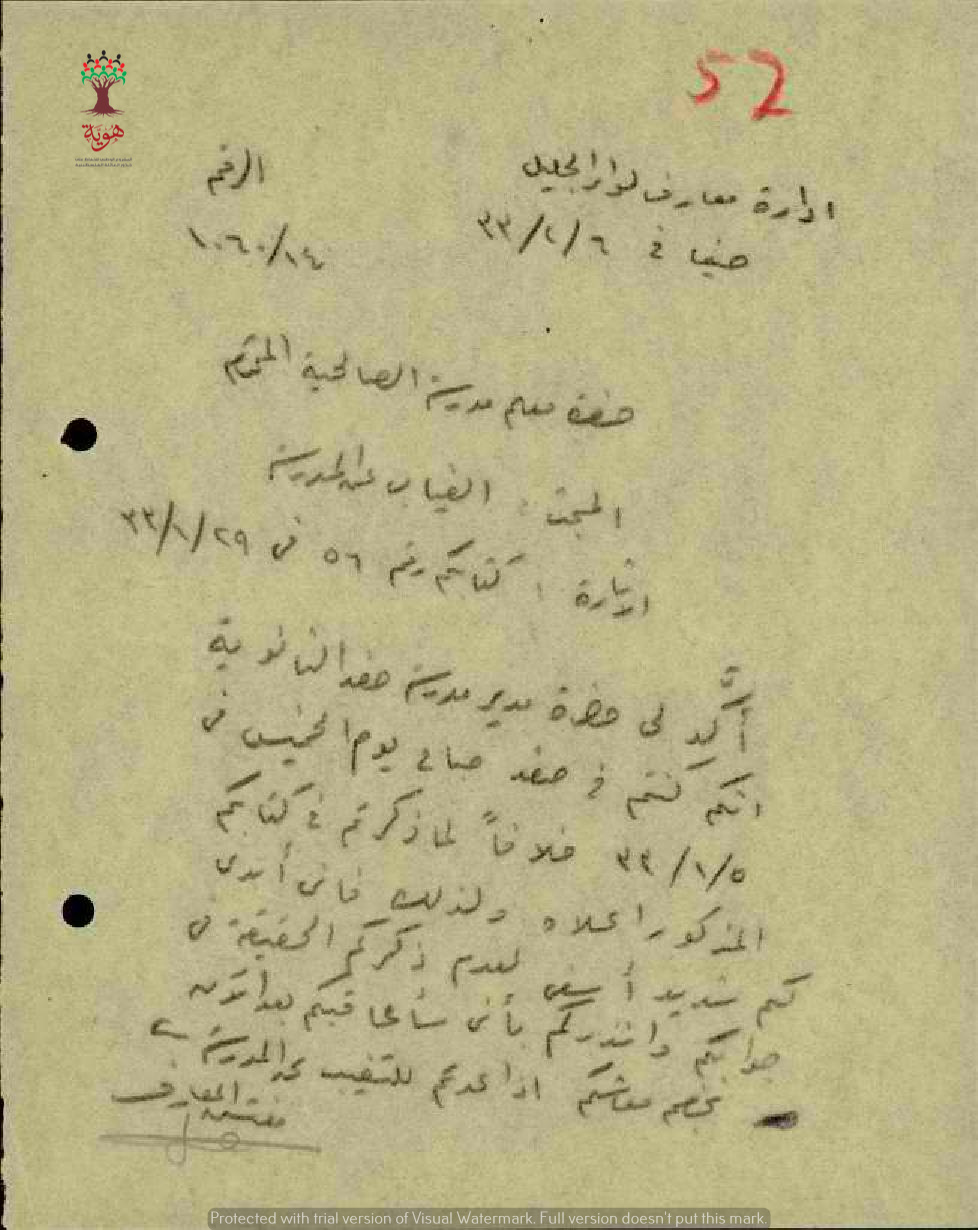 52
هوية
ادارة معارف لواء الجليل
الرقم
حيفا في ٦/٢/٣٣
١٤/١٠٦٠
حضرة معلم مدرسة الصالحية المحترم
المبحث : الغياب عن المدرسة
اشارة : كتابكم رقم ٥٦ في ٢٩/١/٣٣
أكّد لي حضرة مدير مدرسة صفد الثانوية
انكم كنتم في صفد صباح يوم الخميس في
٥/١/٣٣ خلافاً لما ذكرتم في كتابكم
المذكور اعلاه ولذلك فاني أبدي
لكم شديد أسفي لعدم ذكركم الحقيقة في
جوابكم وانذركم بأني سأعاقبكم بعد الآن
بخصم معاشكم اذا عدتم للتغيب عن المدرسة
مفتش المعارف
Protected with trial version of Visual Watermark. Full version doesn't put this mark.